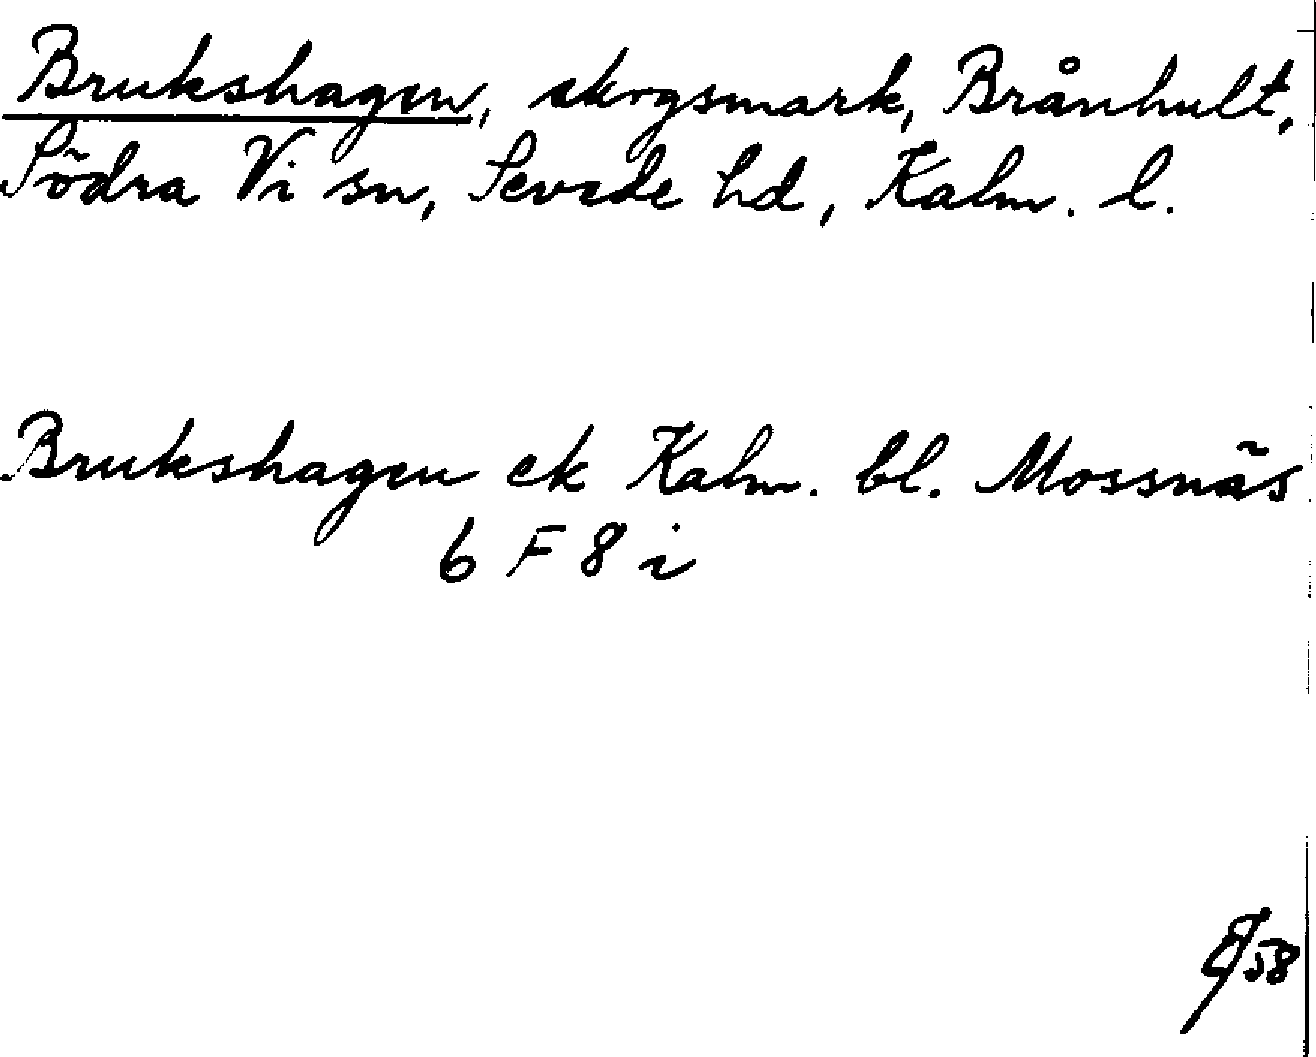 Brukshagen, skogsmark, Brånhult,
Södra Vi sn, Sevede hd, Kalm. l.
Brukshagen ek Kalm. bl. Mossnäs
6 F 8 i
58